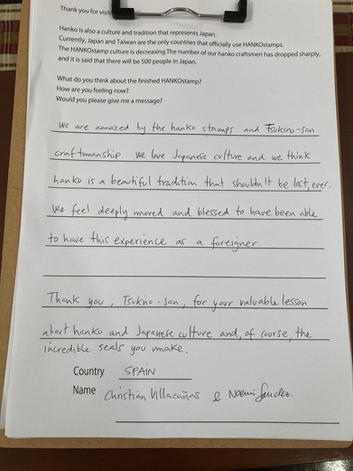 Thank you for visit
Hanko is also a culture and tradition that represents Japan.
Currently, Japan and Taiwan are the only countries that officially use HANKOstamps.
The HANKOstamp culture is decreasing.The number of our hanko craftsmen has dropped sharply,
and it is said that there will be 500 people in Japan.
What do you think about the finished HANKOstamp?
How are you feeling now?
Would you please give me a message?
We are amazed by the hanko stamps and Tsukino-san
craftmanship. We love Japanese culture and we think
hanko is a beautiful tradition that shouldn't be lost, ever.
We feel deeply moved and blessed to have been able
to have this experience as a foreigner.
Thank you, Tsukino-san, for your valuable lesson
about hanko and Japanese culture and, of course, the
incredible seals you make.
Country SPAIN
Name Christian Villacañas & Noemi